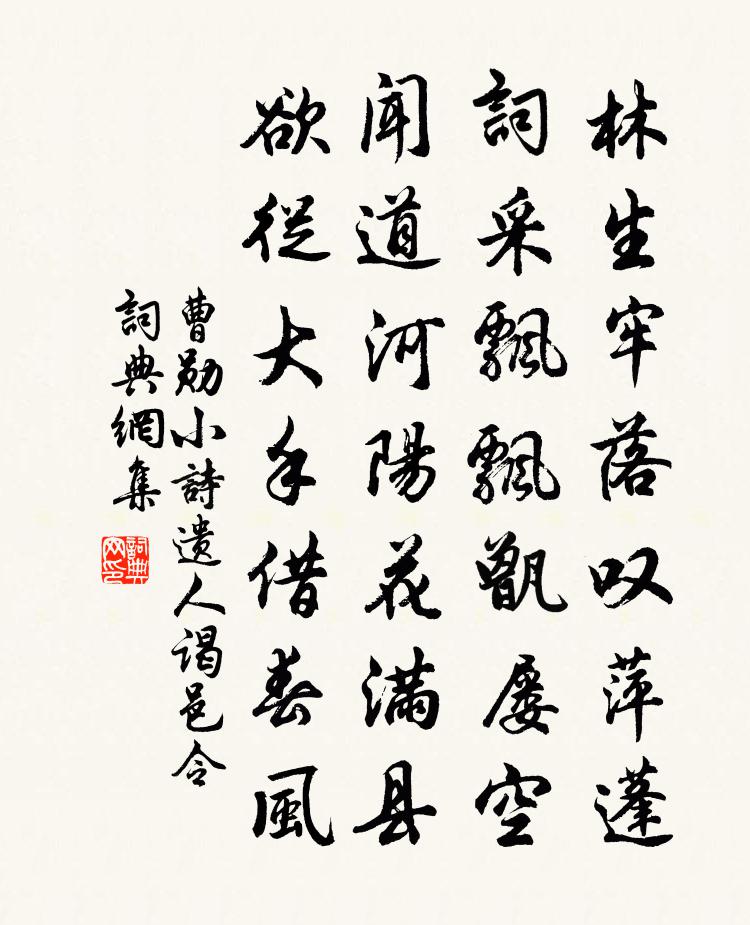 林生牢落叹萍蓬
詞采飄飄甑屡空
闻道河陽花满县
欲從大手借春風
曹勋小詩遗人谒邑令
詞典網集
詞典网印